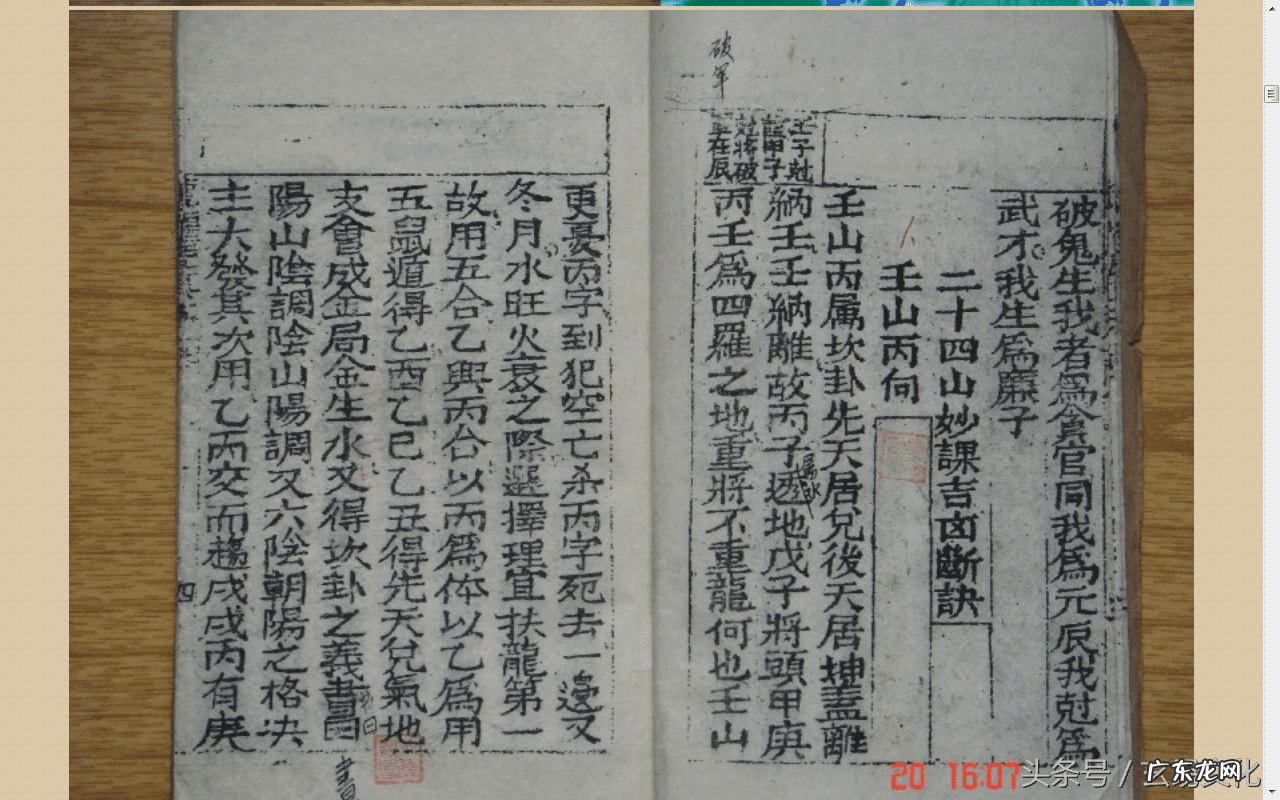 破軍
破鬼生我者爲貪官同我爲元辰我尅爲
武才我生爲廉子
二十四山妙課吉凶斷訣
壬山丙向
壬山丙属坎卦先天居兌後天居坤蓋離
納壬壬納離故丙子透地戊子將頭甲庚
丙壬爲四羅之地重將不重龍何也壬山
壬子尅
龍甲子
尅將破
軍在辰
更憂丙字到犯空亡杀丙字死去一邊又
冬月水旺火衰之際選擇理宜扶龍第一
故用五合乙與丙合以丙爲体以乙爲用
五鼠遁得乙酉乙巳乙丑得先天兌氣地
支會成金局金生水又得坎卦之義書曰
陽山陰調陰山陽調又六陰朝陽之格决
主大發其次用乙丙交而趨戌戌丙有庚
四
書曰
20 16:07
头条号 /
广东龙网